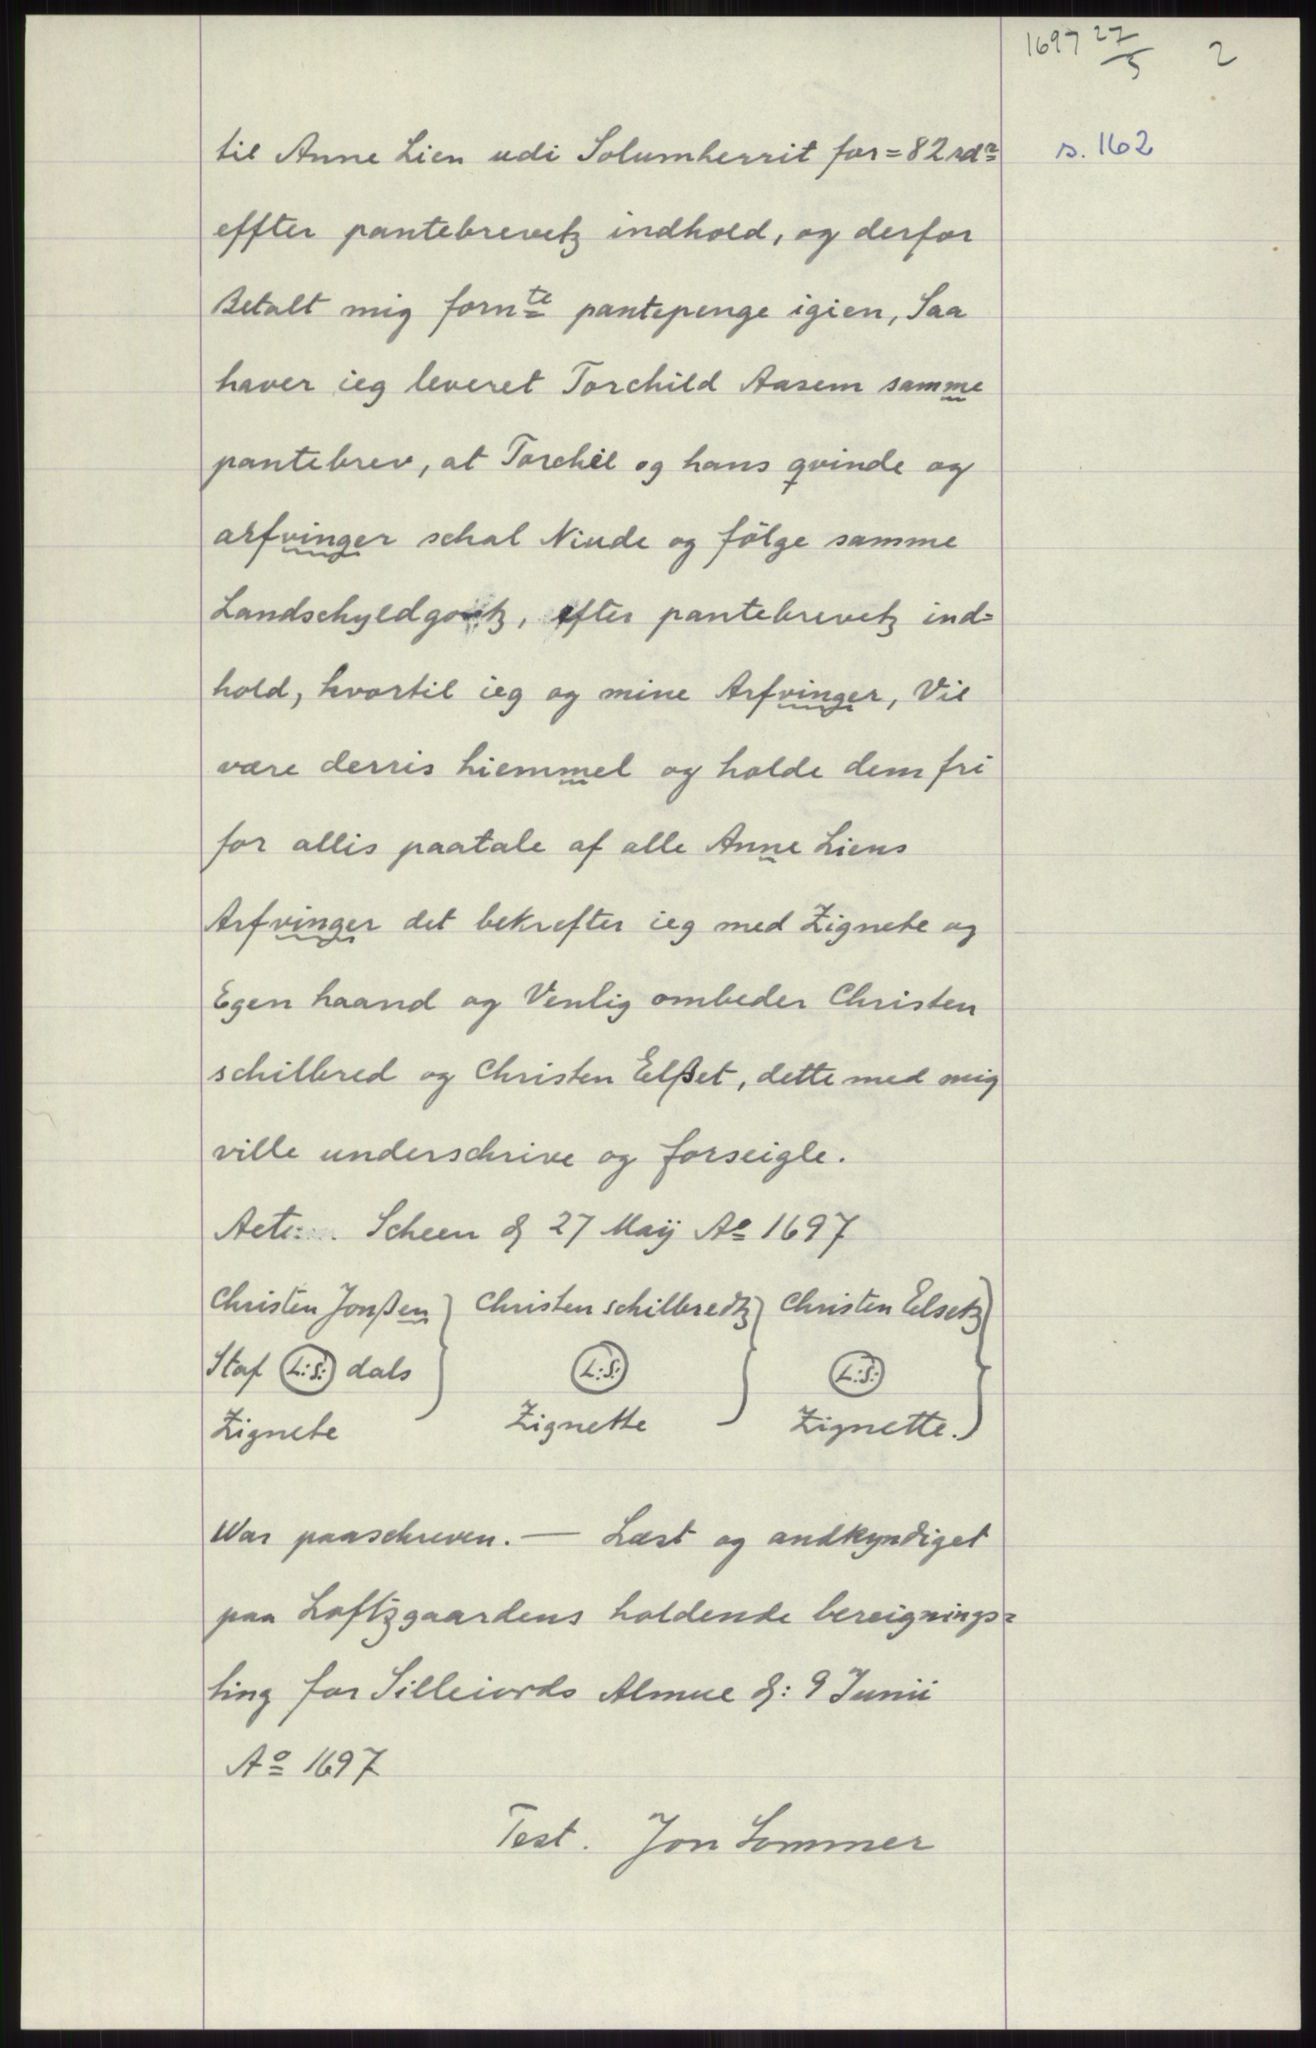 1697 27/5 2
til Anne Lien udi Solumherrit for = 82 rdr
s. 162
effter pantebrevetz indhold, og derfor
Betalt mig fornte pantepenge igien, Saa
haver ieg leveret Torchild Aasem samme
pantebrev, at Torchil og hans qvinde og
arfvinger schal Niude og følge samme
Landschyldgodtz, efter pantebrevetz ind=
hold, hvortil ieg og mine Arfvinger, Vil
være derris hiemmel og holde dem fri
for allis paatale af alle Anne Liens
Arfvinger det bekrefter ieg med Zignete og
Egen haand og Venlig ombeder Christen
schilbred og Christen Elßet, dette med mig
ville underschrive og forseigle.
Actr: Scheen d 27 Maij Ao 1697
Christen Jonßen } Christen schilbredtz } Christen Elsetz }
Staf L:S: dals L:S: L:S:
Zignete Zignette Zignette.
War paaschreven. — Læst og andkyndiget
paa Loftzgaardens holdende bereignings=
ting for Silleiords Almue d: 9 Junii
Ao 1697
Test. Jon Sommer